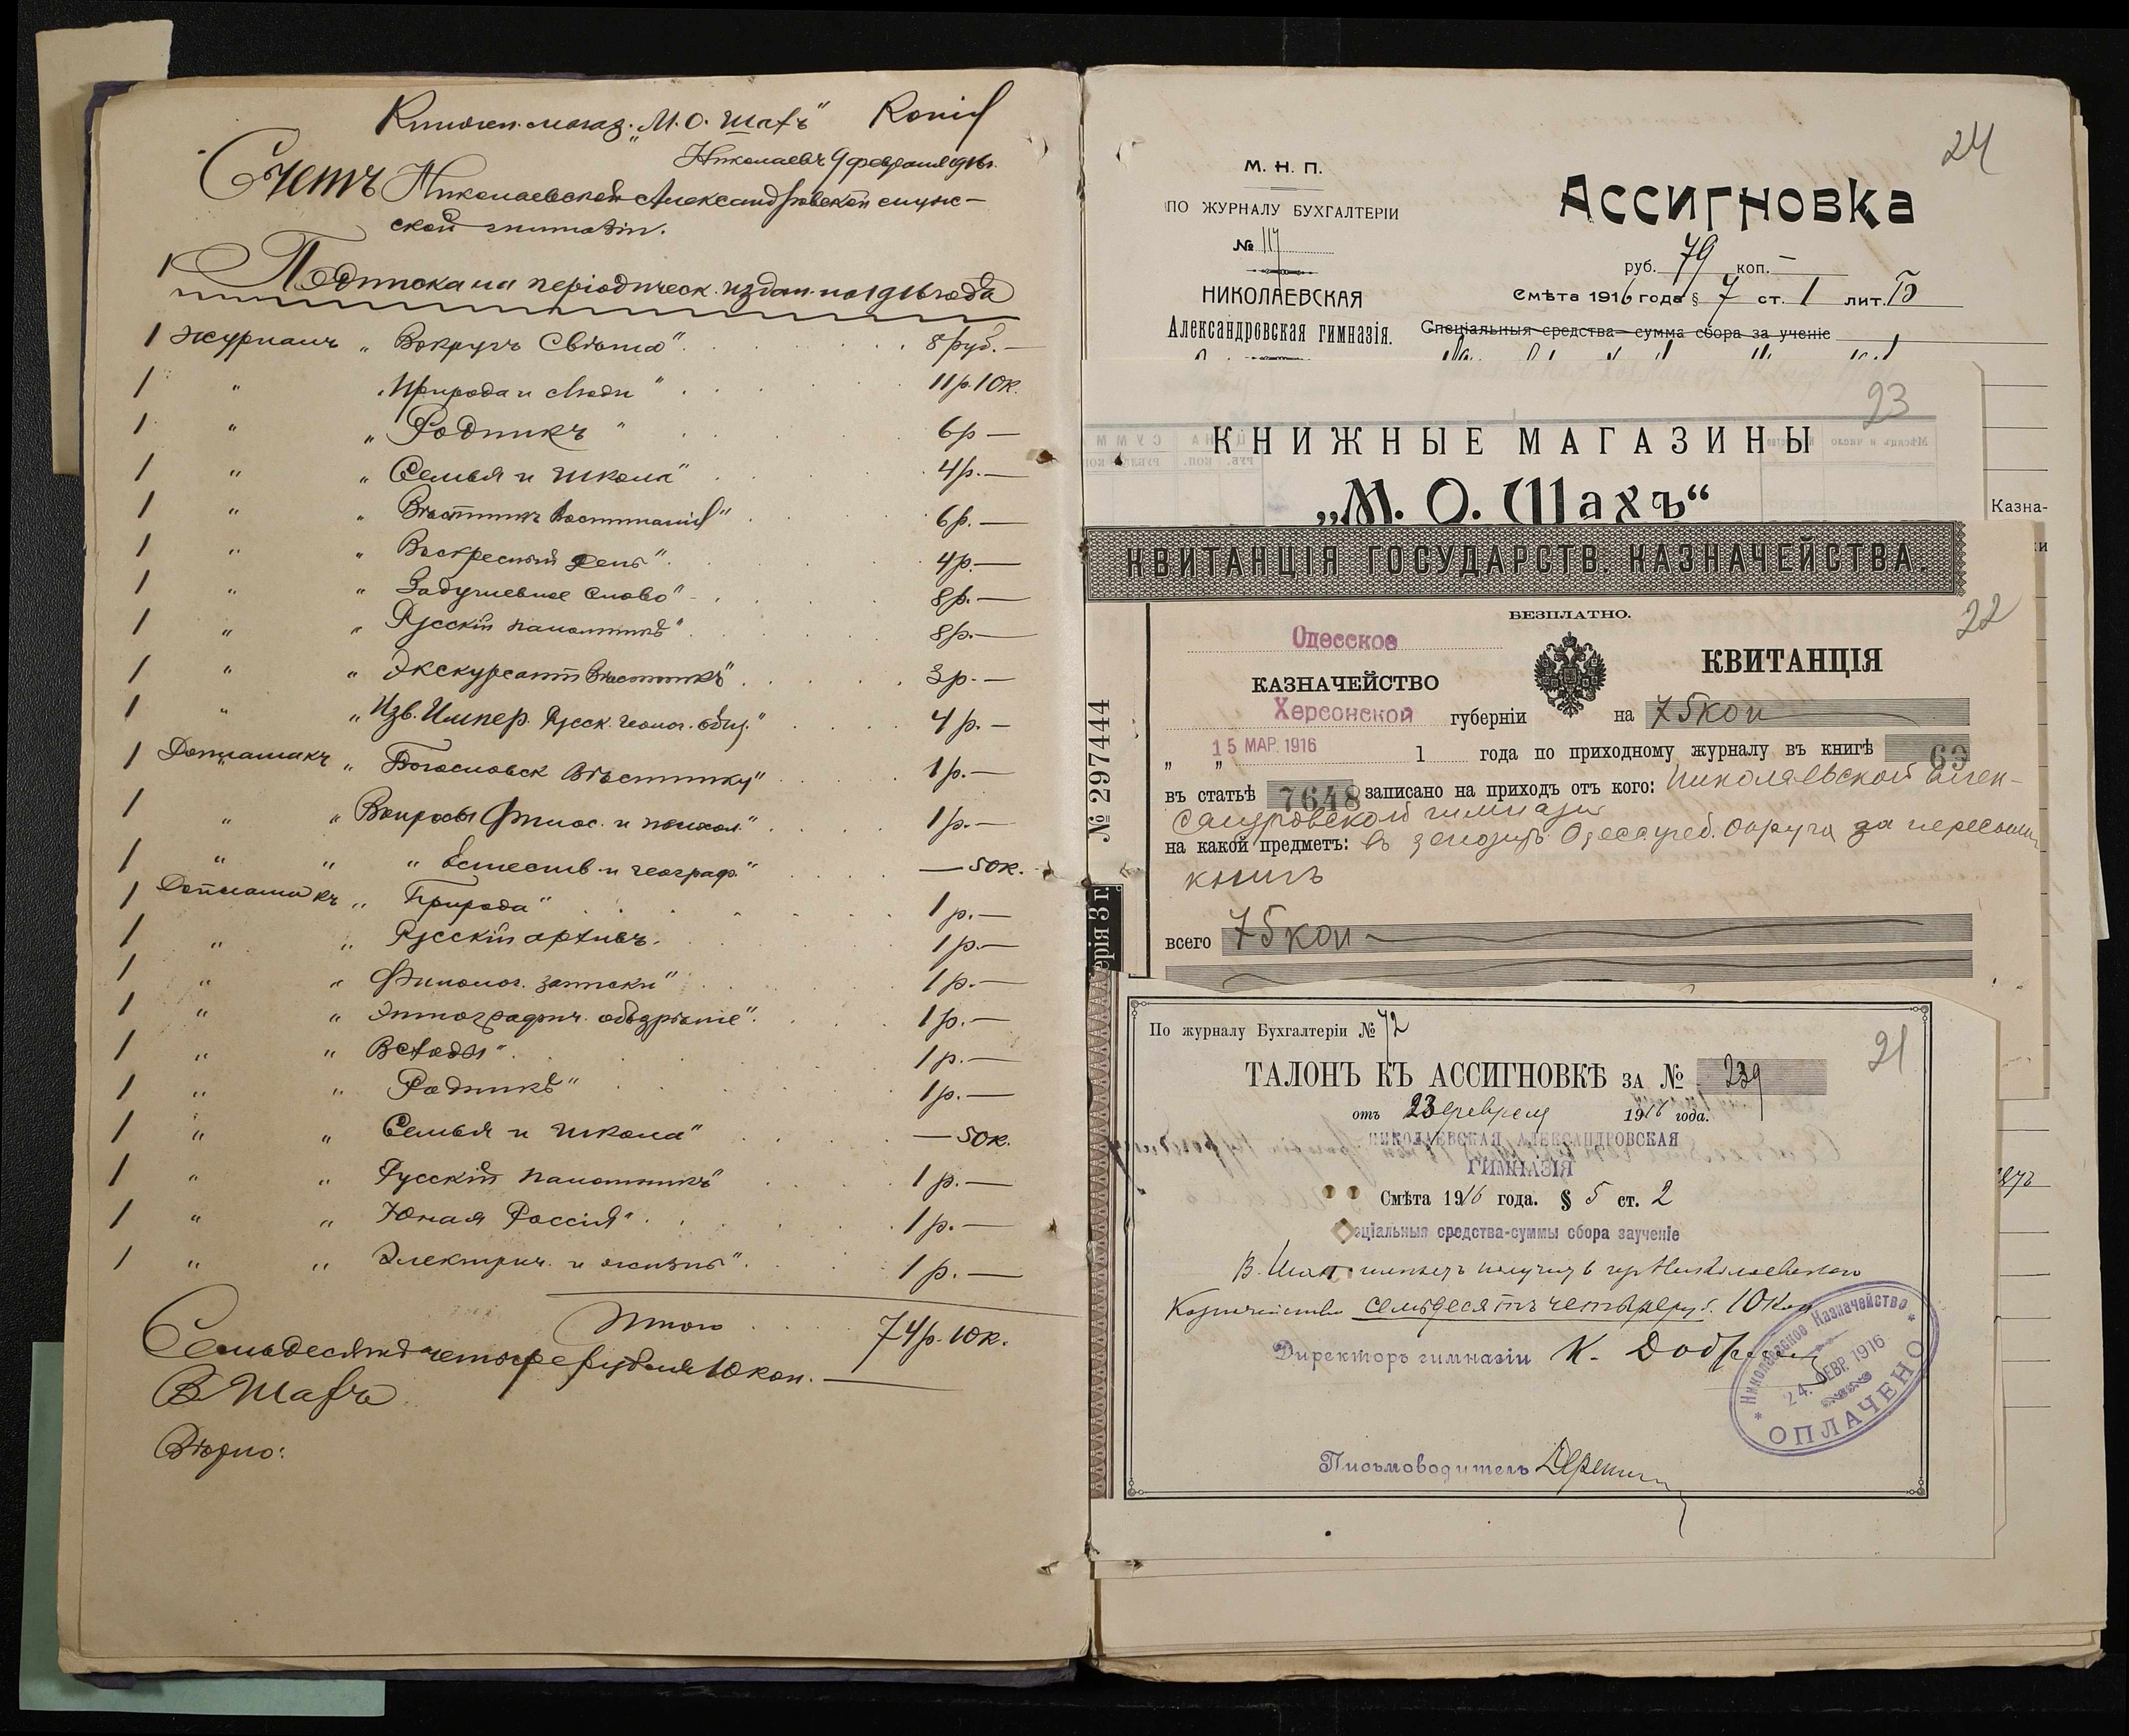 Книжн. магаз. „М. О. Шахъ“ Копія
Николаевъ 9 февраля 1916 г.
Счетъ Николаевской Александровской мужс-
ской гимназіи.
1 Подписка на періодическ. издан. на 1916 года
1 журналъ „Вокругъ Свѣта“ 8 руб. —
1 " „Природа и Люди“ 11 р. 10 к.
1 " „Родникъ“ 6 р —
1 " „Семья и Школа“ 4 р. —
1 " „Вѣстникъ Воспитанія“ 6 р. —
1 " „Воскресный День“ 4 р. —
1 " „Задушевное Слово“ 8 р. —
1 " „Русскій паломникъ“ 8 р. —
1 " „Экскурсант Вѣстникъ“ 3 р. —
1 " „Изв. Импер. Русск. геогр. общ.“ 4 р. —
1 Доплата къ „Богословск Вѣстнику“ 1 р. —
1 " „Вопросы Филос. и психол.“ 1 р. —
1 " " „Естеств. и географ.“ — 50 к.
1 Доплата къ „Природа“ 1 р. —
1 " „Русскій архивъ. 1 р. —
1 " „Филолог. записки“ 1 р. —
1 " „Этнографич. обозрѣніе“. 1 р. —
1 " „Всходы“. 1 р. —
1 " „Родникъ“ 1 р. —
1 " „Семья и Школа“ — 50 к.
1 " „Русскій паломникъ“ 1 р. —
1 " „Юная Россія“. 1 р. —
1 " „Электрич. и жизнь“. 1 р. —
Итого 74 р. 10 к.
Семьдесятъ четыре рубля 10 коп. —
В Шахъ
Вѣрно:
24
М. Н. П.
ПО ЖУРНАЛУ БУХГАЛТЕРІИ
№ 117
НИКОЛАЕВСКАЯ
Александровская гимназія.
Ассигновка
руб. 79 коп. —
Смѣта 1916 года § 7 ст. 1 лит. Б
Спеціальныя средства—сумма сбора за ученіе
23
КНИЖНЫЕ МАГАЗИНЫ
„М. О. Шахъ“
Казна-
КВИТАНЦІЯ ГОСУДАРСТВ. КАЗНАЧЕЙСТВА.
22
БЕЗПЛАТНО.
Одесское
КАЗНАЧЕЙСТВО
КВИТАНЦІЯ
Херсонской губерніи на 75 коп
„ 15 МАР. 1916 „ 1 года по приходному журналу въ книгѣ 69
въ статьѣ 7648 записано на приходъ отъ кого: Николаевской Алек-
сандровской гимназіи
на какой предметъ: въ депозитъ Одесс. учеб. Округа за пересылку
книгъ
всего 75 коп
№ 297444
ерія 3 г.
21
По журналу Бухгалтеріи № 72
ТАЛОНЪ КЪ АССИГНОВКѢ ЗА № 239
отъ 23 февраля 1916 года.
НИКОЛАЕВСКАЯ АЛЕКСАНДРОВСКАЯ
ГИМНАЗІЯ
Смѣта 1916 года. § 5 ст. 2
еціальныя средства-суммы сбора заученіе
В. Шах имѣетъ получить изъ Николаевского
Казначейства семьдесятъ четыре руб. 10 коп
Директоръ гимназіи К.
Николаевское Казначейство
24. ФЕВР. 1916
ОПЛАЧЕНО
Письмоводитель